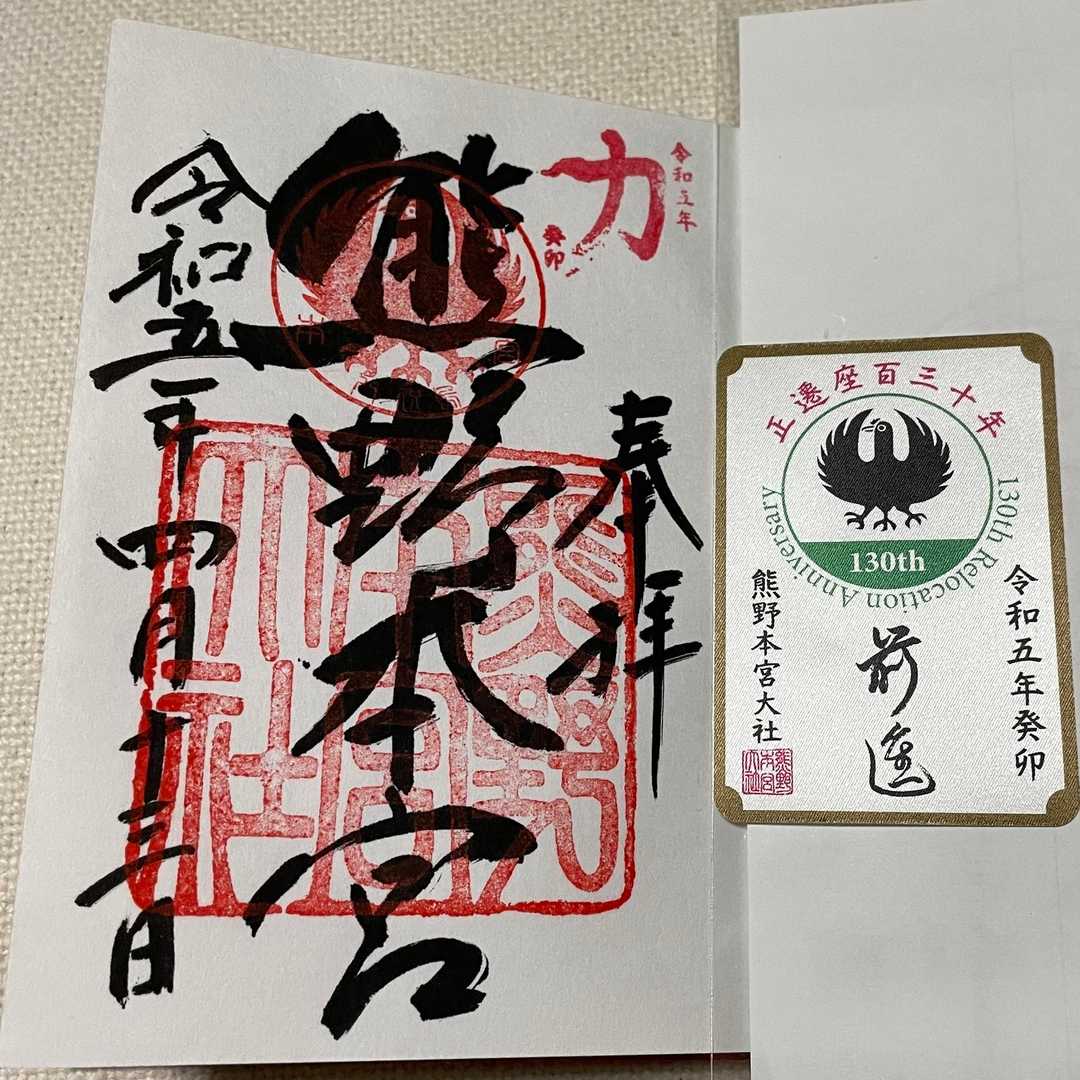 令和五年
力
癸卯
奉拝
熊野本宮
令和五年四月十三日
熊野本宮大社
正遷座百三十年
130th Relocation Anniversary
130th
令和五年癸卯
前進
熊野本宮大社
熊野本宮大社